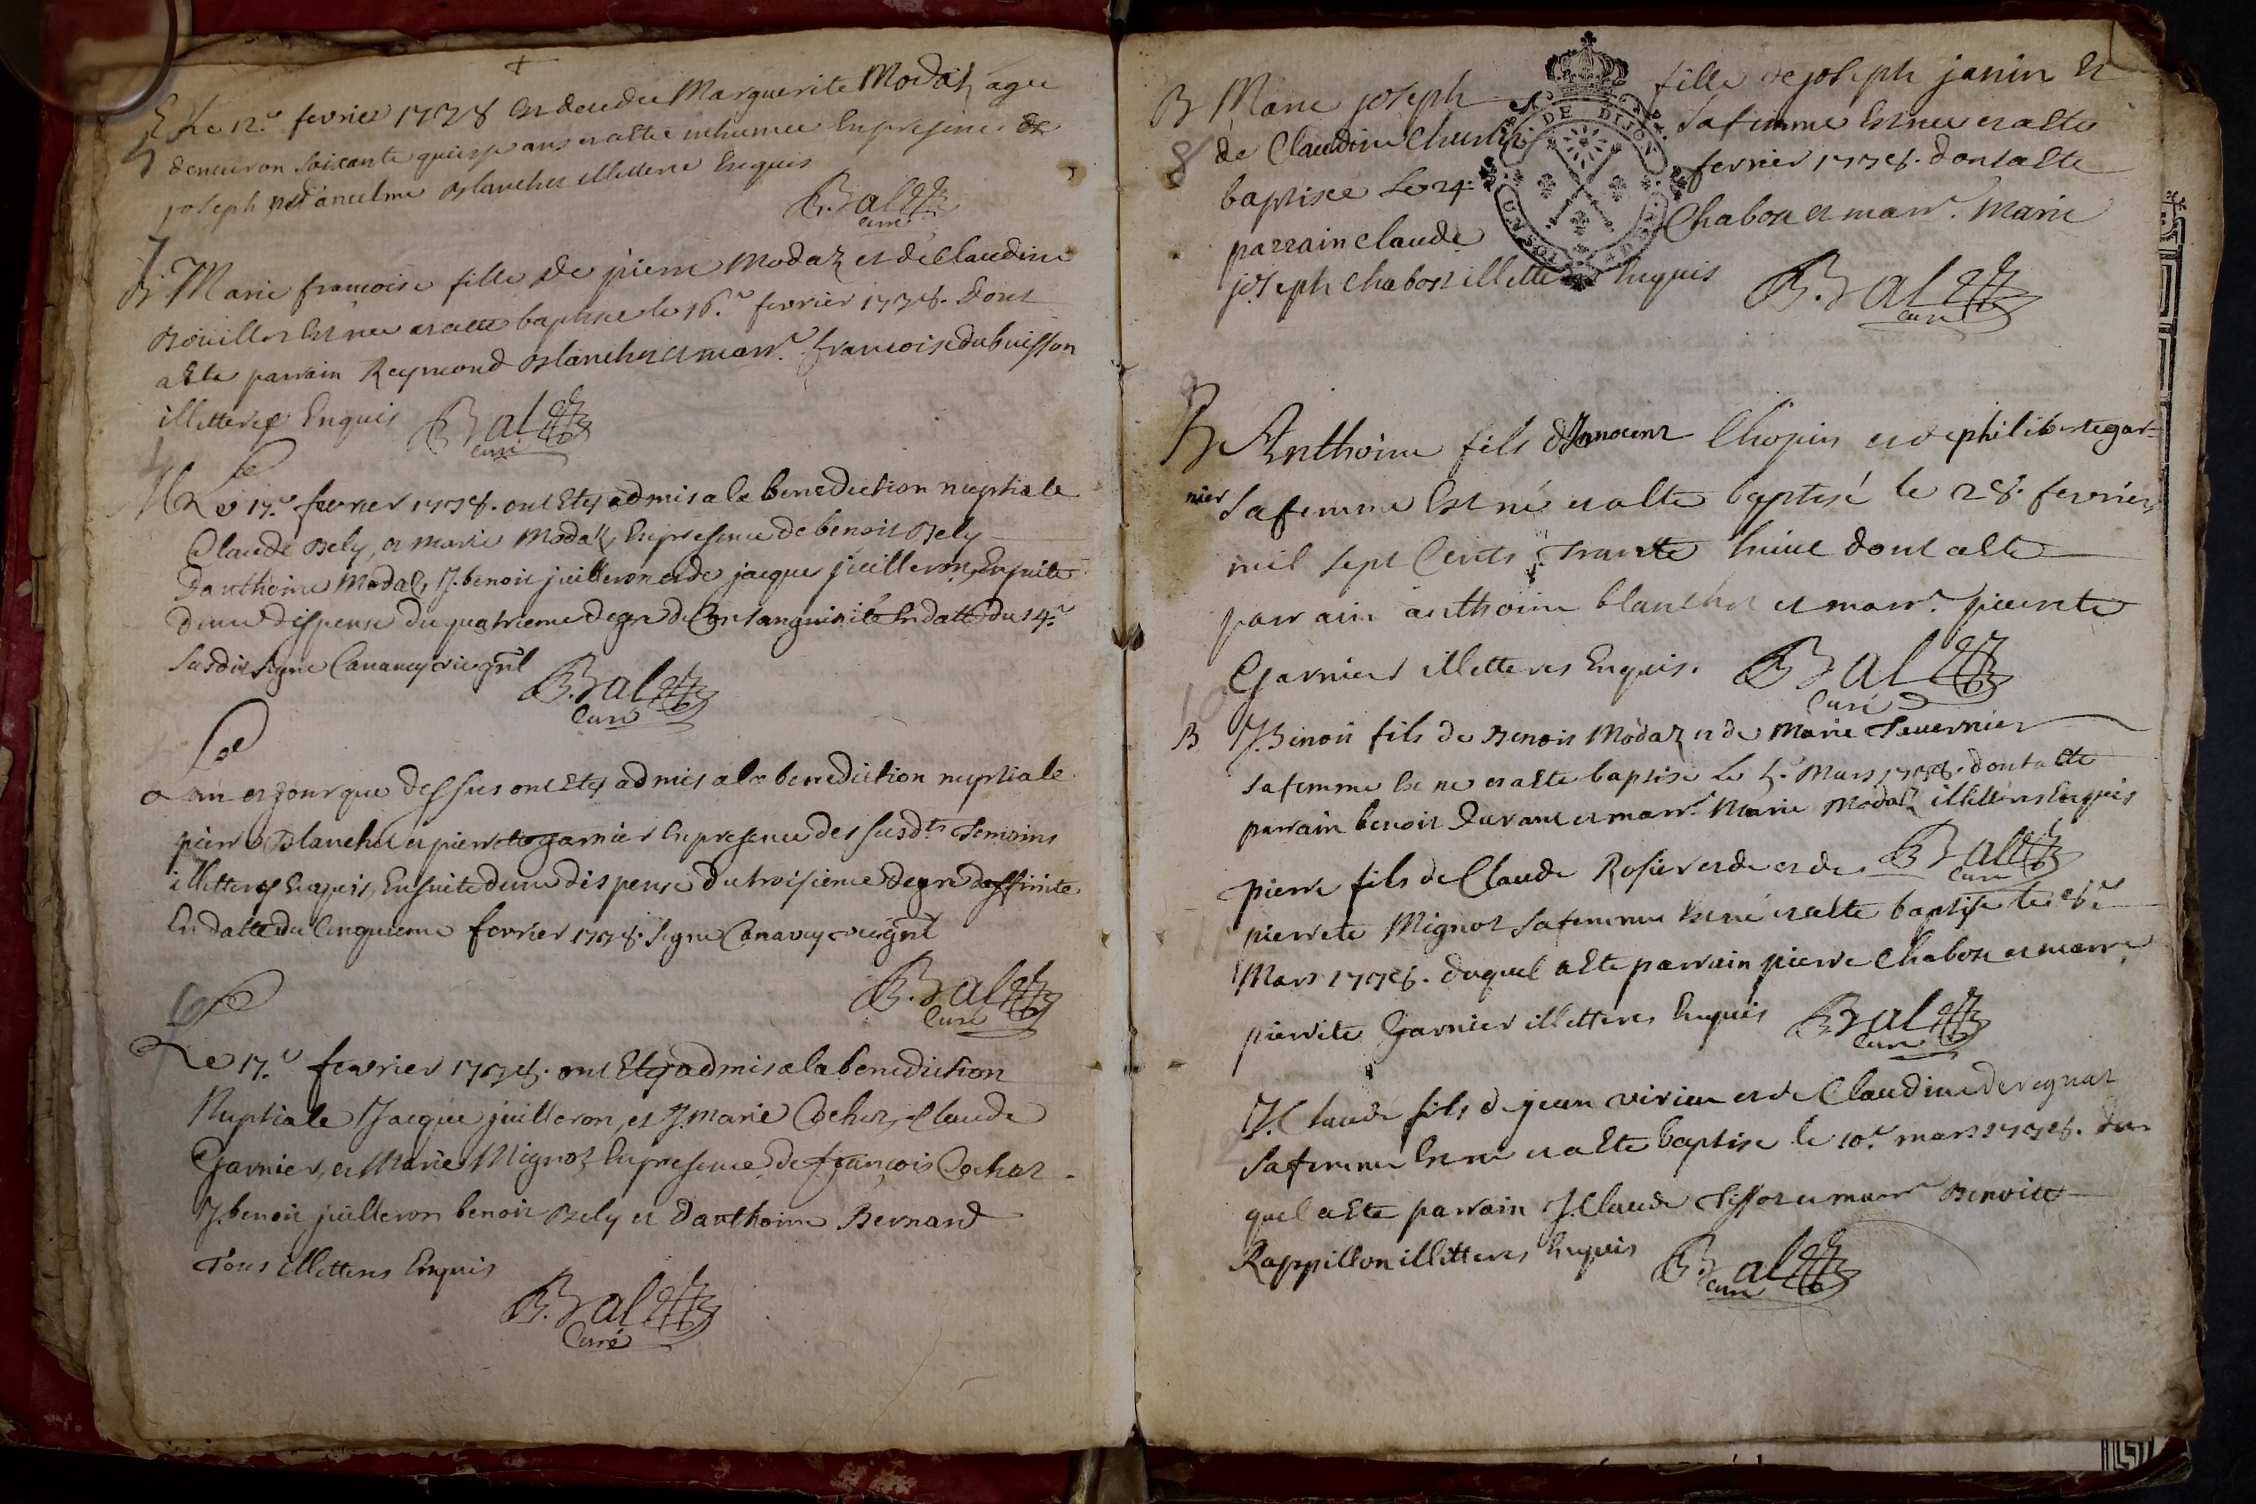 Le 12.e fevrier 1738 est decedee Marguerite Modaz agee
denviron soixante quinze ans et a ete inhumee En presence de
joseph et d'anselme Blanchet illitere Enquis
B. Bal
curé
7
B Marie francoise fille de pierre Modaz et de Claudine
Bouillet Est nee et a ete baptisee le 16.e fevrier 1738. Dont
a Ete parrain Reymond Blanchet et marr.e francoise dubuisson
illitteres Enquis Bal
curé
M Le 17.e fevrier 1738. ont Etes admis a la benediction nuptiale
Claude Bely, et marie Modaz, En presence de benoit Bely
Danthoine Modaz, J. benoit juilleron et de jacque juilleron, Ensuite
dune dispense du quatrieme degre de Consanguinité En datte du 14.e
susdit signe Canavey vic gnl
B. Bal
Curé
Le
an et jour que dessus ont Etes admis a la benediction nuptiale
pierre Blanchet et pierrette garnier En presence des susd.ts Temoins
illitteres Enquis, Ensuite dune dispense du troisieme degre daffinite
En datte du Cinquieme fevrier 1738. signe Canavey vic gnl
B. Bal
Curé
6
Le 17.e fevrier 1738. ont Etes admis a la benediction
Nuptiale Jacque juilleron, et J. marie Cochet, Claude
Garnier, et Marie Mignot En presence de françois Cochet
J. benoit juilleron benoit Bely et Danthoine Bernard
Tous illitteres Enquis
B. Bal
Curé
B Marie joseph fille de joseph janin Et
8 de Claudine sa femme Est nee et a Ete
baptisee Le 24 fevrier 1738. dont a Ete
parrain claude Chabot et marr.e Marie
joseph Chabot illittes Enquis B. Bal
curé
DE DIJON
B Anthoine fils d'Innocent Chopin et de philiberte gar=
nier sa femme Est né et a Ete baptisé le 28. fevrier
mil sept Cents Trante huict dont a Ete
parrain anthoine blanchet et marr.e pierrete
Garnier illitteres Enquis. B Bal
Curé
10
B J. Benoit fils de Benoit Modaz et de Marie Tavernier
sa femme Est ne et a Ete baptise Le 5.e Mars 1738. dont a Ete
parrain benoit Durant et marr.e Marie Modaz illitteres Enquis
B Bal
curé
pierre fils de Claude Rosier et de et de
pierrete Mignot sa femme Est né et a Ete baptise le 8.e
Mars 1738. duquel a Ete parrain pierre Chabot et marr.e
pierrete Garnier illitteres Enquis B Bal
Curé
J. Claude fils de jean virieu et de Claudine deregnat
sa femme Est ne et a Ete baptise le 10.e mars 1738. du
quel a Ete parrain J. Claude Tissot et marr.e Benoite
Rappillon illitteres Enquis B. Bal
curé